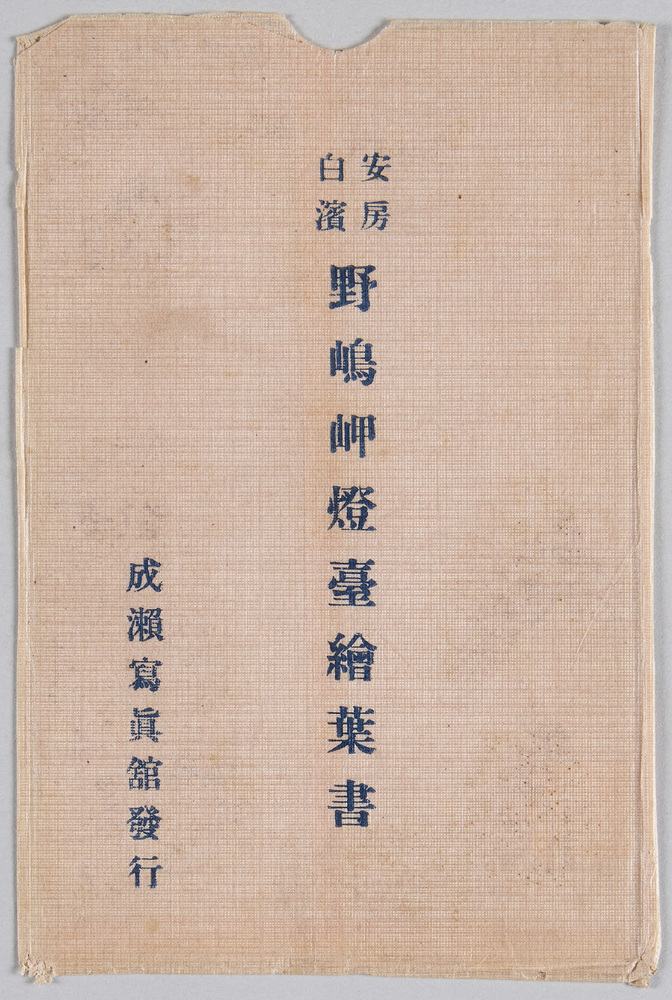 安房
白濱
野嶋岬燈臺繪葉書
成瀨寫眞舘發行